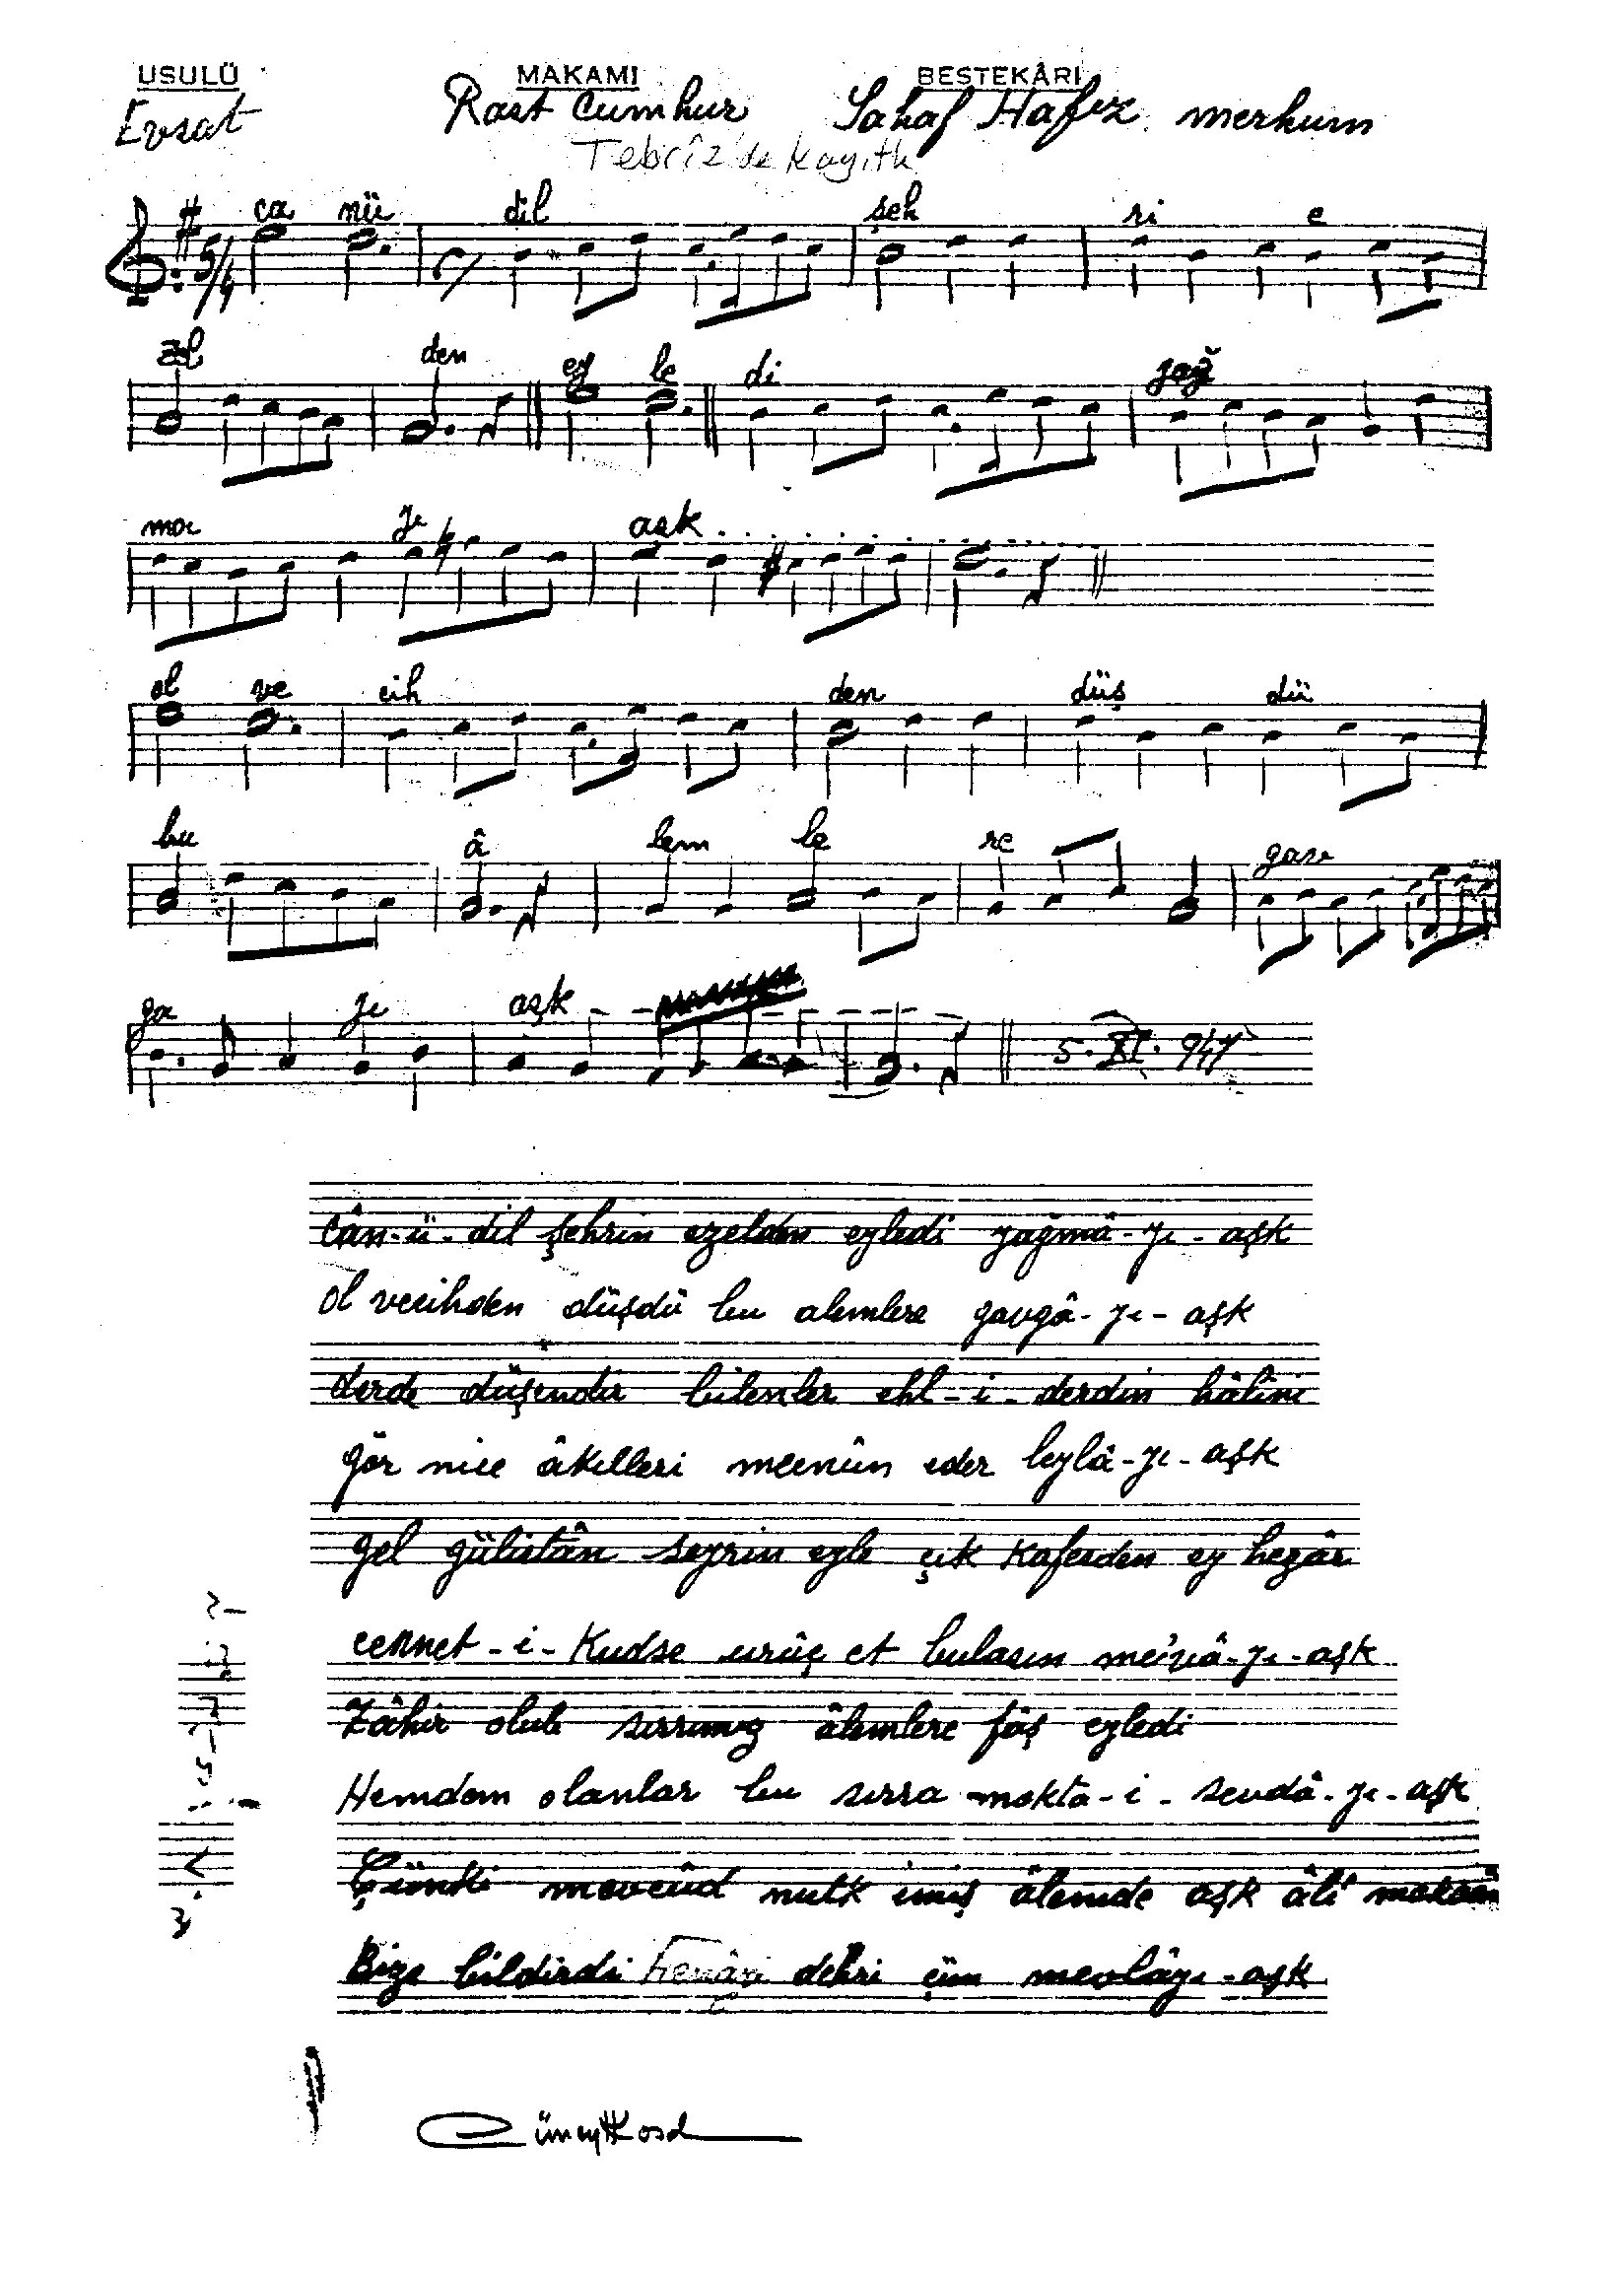 USULÜ MAKAMI BESTEKÂRI
Evsat Rast Cumhur Sahaf Hafız merhum
Tebrîz'de kayıtlı
5/4 ca nü dil şeh ri e
zel den ey le di yağ
ma yı aşk
ol ve cih den düş dü
bu â lem le re gav
ga yı aşk 5. XI. 947
cân-ü-dil şehrin ezelden eyledi yağmâ-yı-aşk
ol vecihden düşdü bu alemlere gavgâ-yı-aşk
derde düşendir bilenler ehl-i-derdin hâlini
gör nice âkılleri mecnûn eder leylâ-yı-aşk
gel gülistân seyrin eyle çık kafesden ey hezâr
cennet-i-Kudse urûç et bulasın me'vâ-yı-aşk
Zâhir olub sırrımız âlemlere fâş eyledi
Hemdem olanlar bu sırra mokta-i-sevdâ-yı-aşk
Çünki mevcûd nutk imiş âlemde aşk âlî makam
Bize bildirdi dehri çün mevlâyı-aşk
Cüneyt Kosal